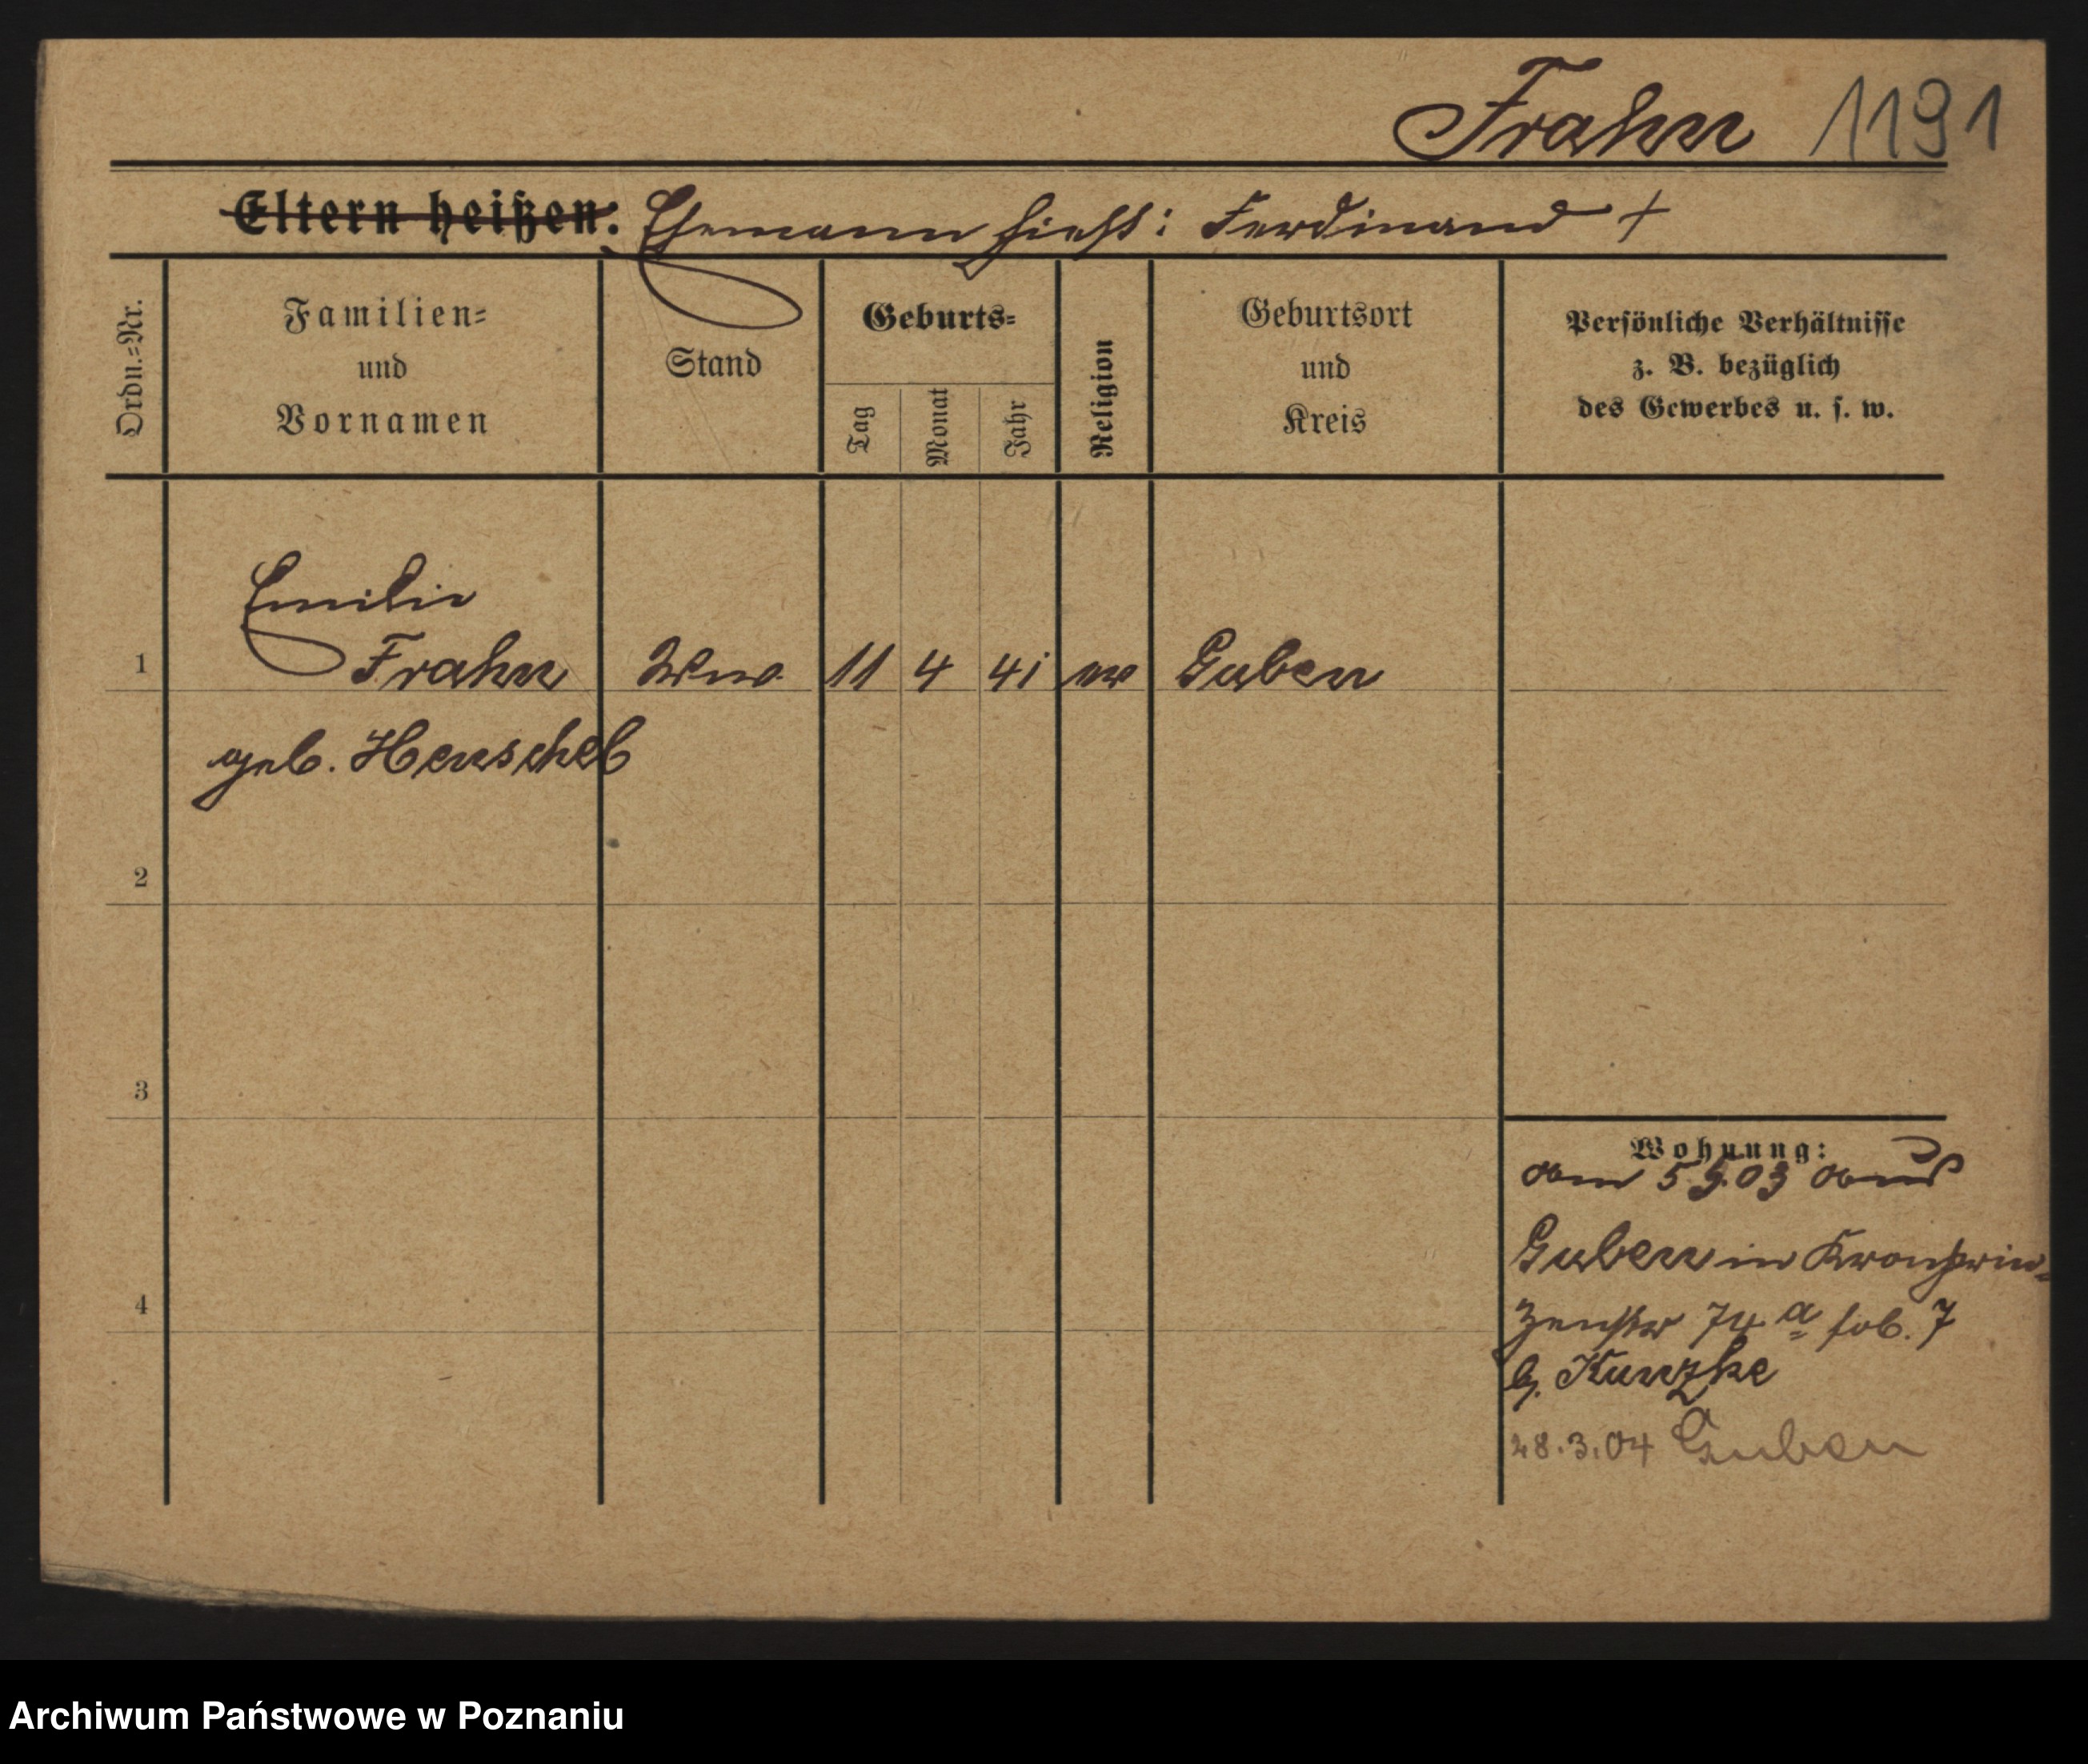 Frahn 1191
Eltern heißen: Ehemann hieß: Ferdinand †
Ordn.=Nr.
Familien=
und
Vornamen
Stand
Geburts=
Tag
Monat
Jahr
Religion
Geburtsort
und
Kreis
Persönliche Verhältnisse
z. B. bezüglich
des Gewerbes u. s. w.
Emilie
1 Frahn Wwe. 11 4 41 ev Guben
geb. Henschel
2
3
4
Wohnung:
am 5 9.03 aus
Guben in Kronprin-
zenstr 74 a 7
b. Kunzke
28.3.04 Guben
Archiwum Państwowe w Poznaniu